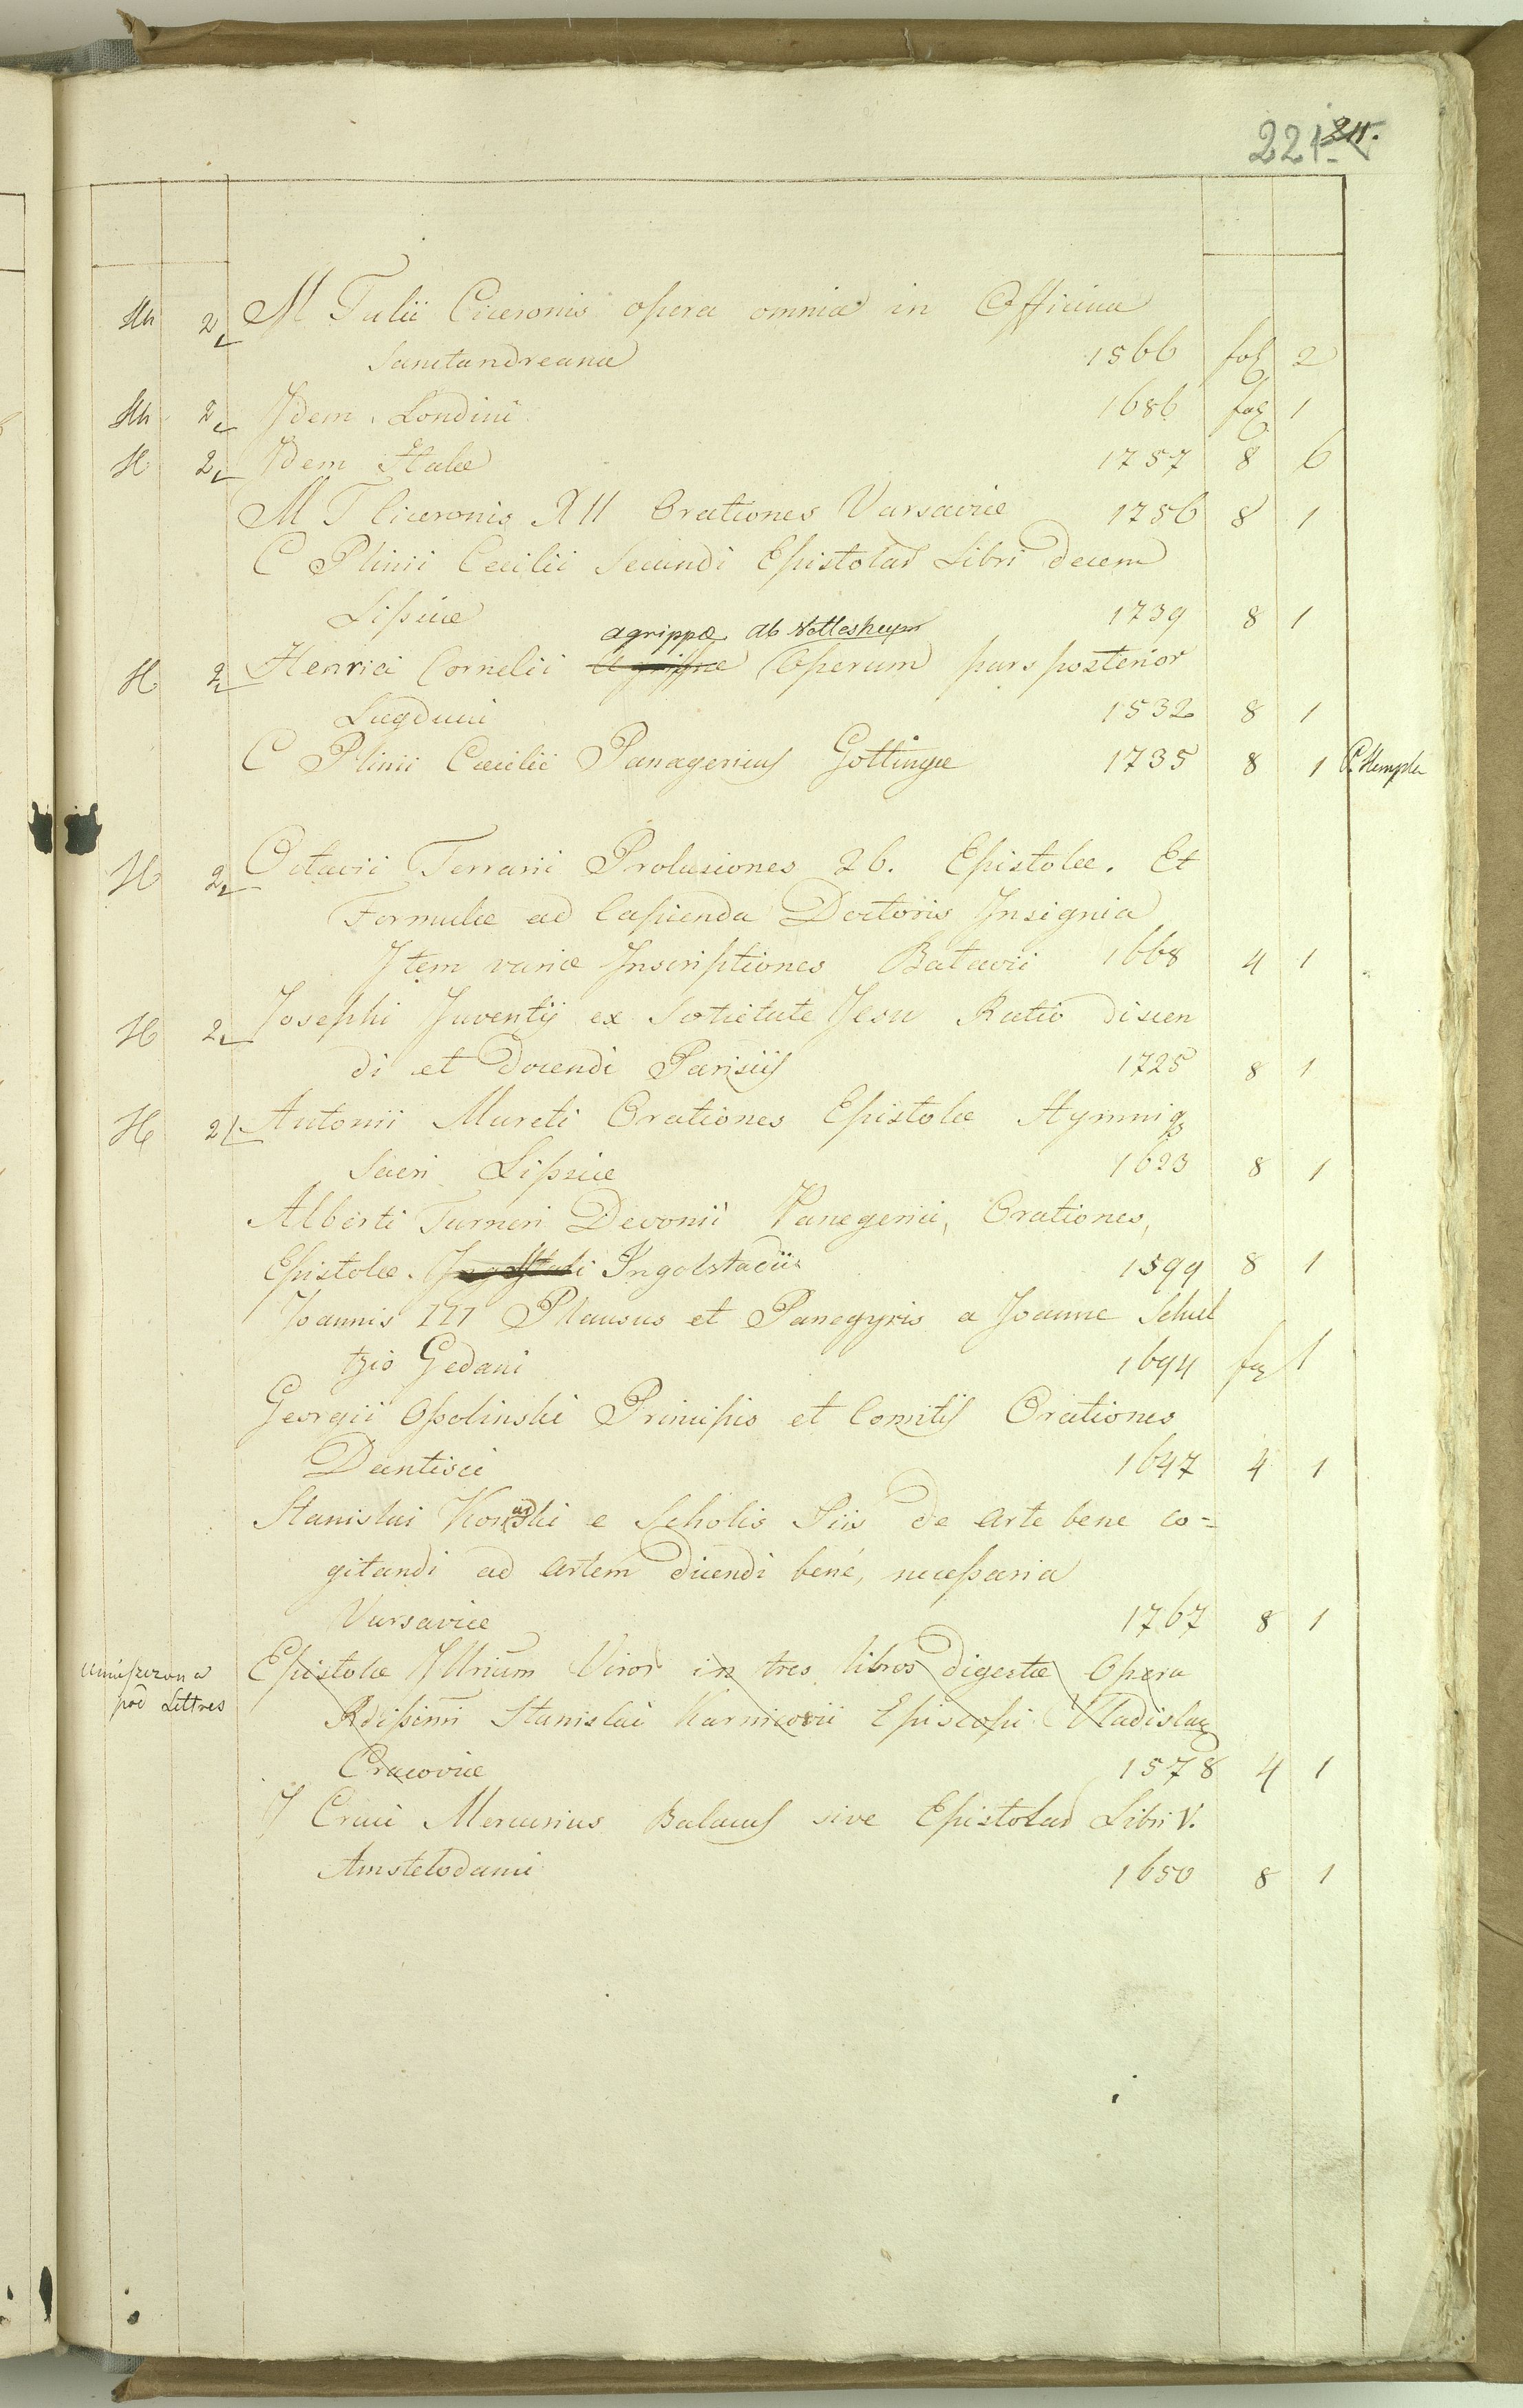 221. 211.
Hh 2 M Tulii Ciceronis opera omnia in Officina
Sanctandreana 1566 fol 2
Hh 2 Jdem Londini 1686 fol 1
H 2 Jdem Halæ 1757 8 6
M T Ciceronis XII Orationes Varsaviæ 1756 8 1
C Plinii Cecilii Secundi Epistolar Libri decem
Lipsiæ 1739 8 1
agrippæ ab Nettesheym
H 2 Henrici Cornelii Agrippæ Operum pars posterior
Lugduni 1532 8 1
C Plinii Cæcilii Panagericus Gottingæ 1735 8 1
H 2 Octavii Ferrarii Prolusiones 26. Epistolæ. Et
Formulæ ad Capienda Doctoris Jnsignia
Jtem variæ Jnscriptiones Batavii 1668 4 1
H 2 Josephi Juventij ex Societate Jesu Ratio discen
di et Docendi Parisiis 1725 8 1
H 2 Antonii Mureti Orationes Epistolæ Hymniq
Sacri Lipsiæ 1623 8 1
Alberti Turneri Devonii Panegerici, Orationes,
Epistolæ. Ingolstadii 1599 8 1
Joannis III Plausus et Panegyris a Joanne Schul
tzio Gedani 1694 fol 1
Georgii Ossolinski Principis et Comitis Orationes
Dantisci 1647 4 1
Stanislai Konarski e Scholis Piis de arte bene co-
gitandi ad artem dicendi bené, necessaria
Varsaviæ 1767 8 1
umieszczona Epistolæ Jllrium Viror in tres libros digestæ Opera
pod Lettres Rdissimi Stanislai Karnicovii Episcopi Vladislav
Cracoviæ 1578 4 1
J Cruci Mercurius Batavus sive Epistolar Libri V.
Amstelodami 1650 8 1